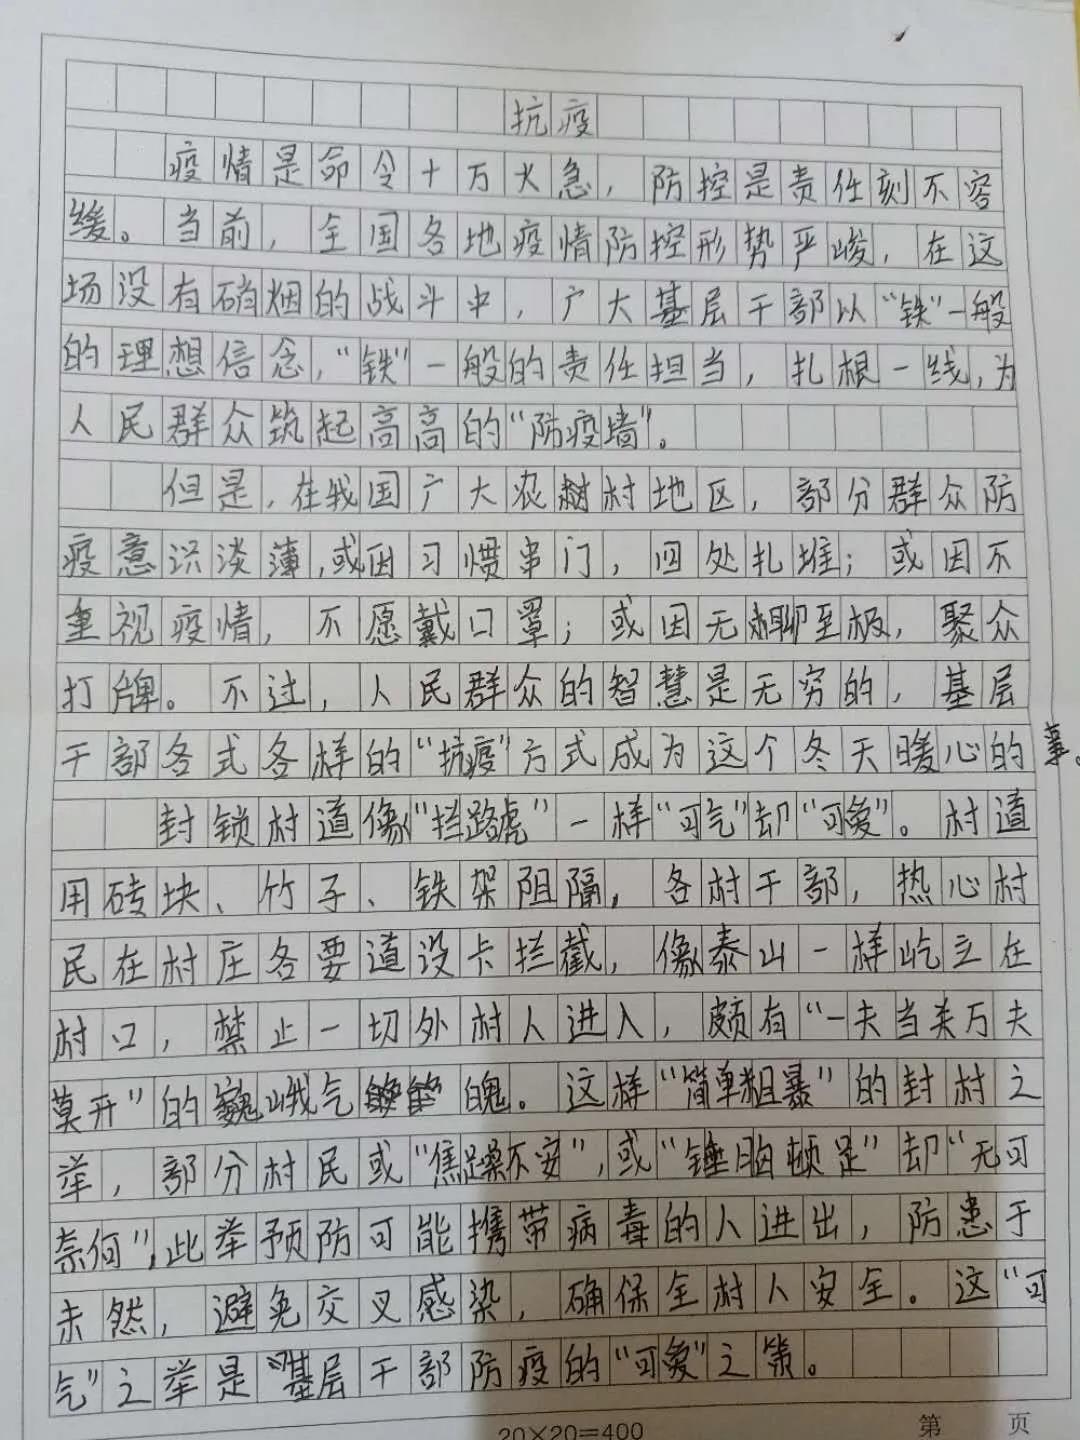 抗疫
疫情是命令十万火急，防控是责任刻不容
缓。当前，全国各地疫情防控形势严峻，在这
场没有硝烟的战斗中，广大基层干部以“铁”一般
的理想信念，“铁”一般的责任担当，扎根一线，为
人民群众筑起高高的“防疫墙”。
但是，在我国广大农村地区，部分群众防
疫意识淡薄，或因习惯串门，四处扎堆；或因不
重视疫情，不愿戴口罩；或因无聊至极，聚众
打牌。不过，人民群众的智慧是无穷的，基层
干部各式各样的“抗疫”方式成为这个冬天暖心的事。
封锁村道像“拦路虎”一样“可气”却“可爱”。村道
用砖块、竹子、铁架阻隔，各村干部，热心村
民在村庄各要道设卡拦截，像泰山一样屹立在
村口，禁止一切外村人进入，颇有“一夫当关万夫
莫开”的巍峨气魄。这样“简单粗暴”的封村之
举，部分村民或“焦躁不安”，或“锤胸顿足”却“无可
奈何”，此举预防可能携带病毒的人进出，防患于
未然，避免交叉感染，确保全村人安全。这“可
气”之举是基层干部防疫的“可爱”之策。
20×20=400 第 页